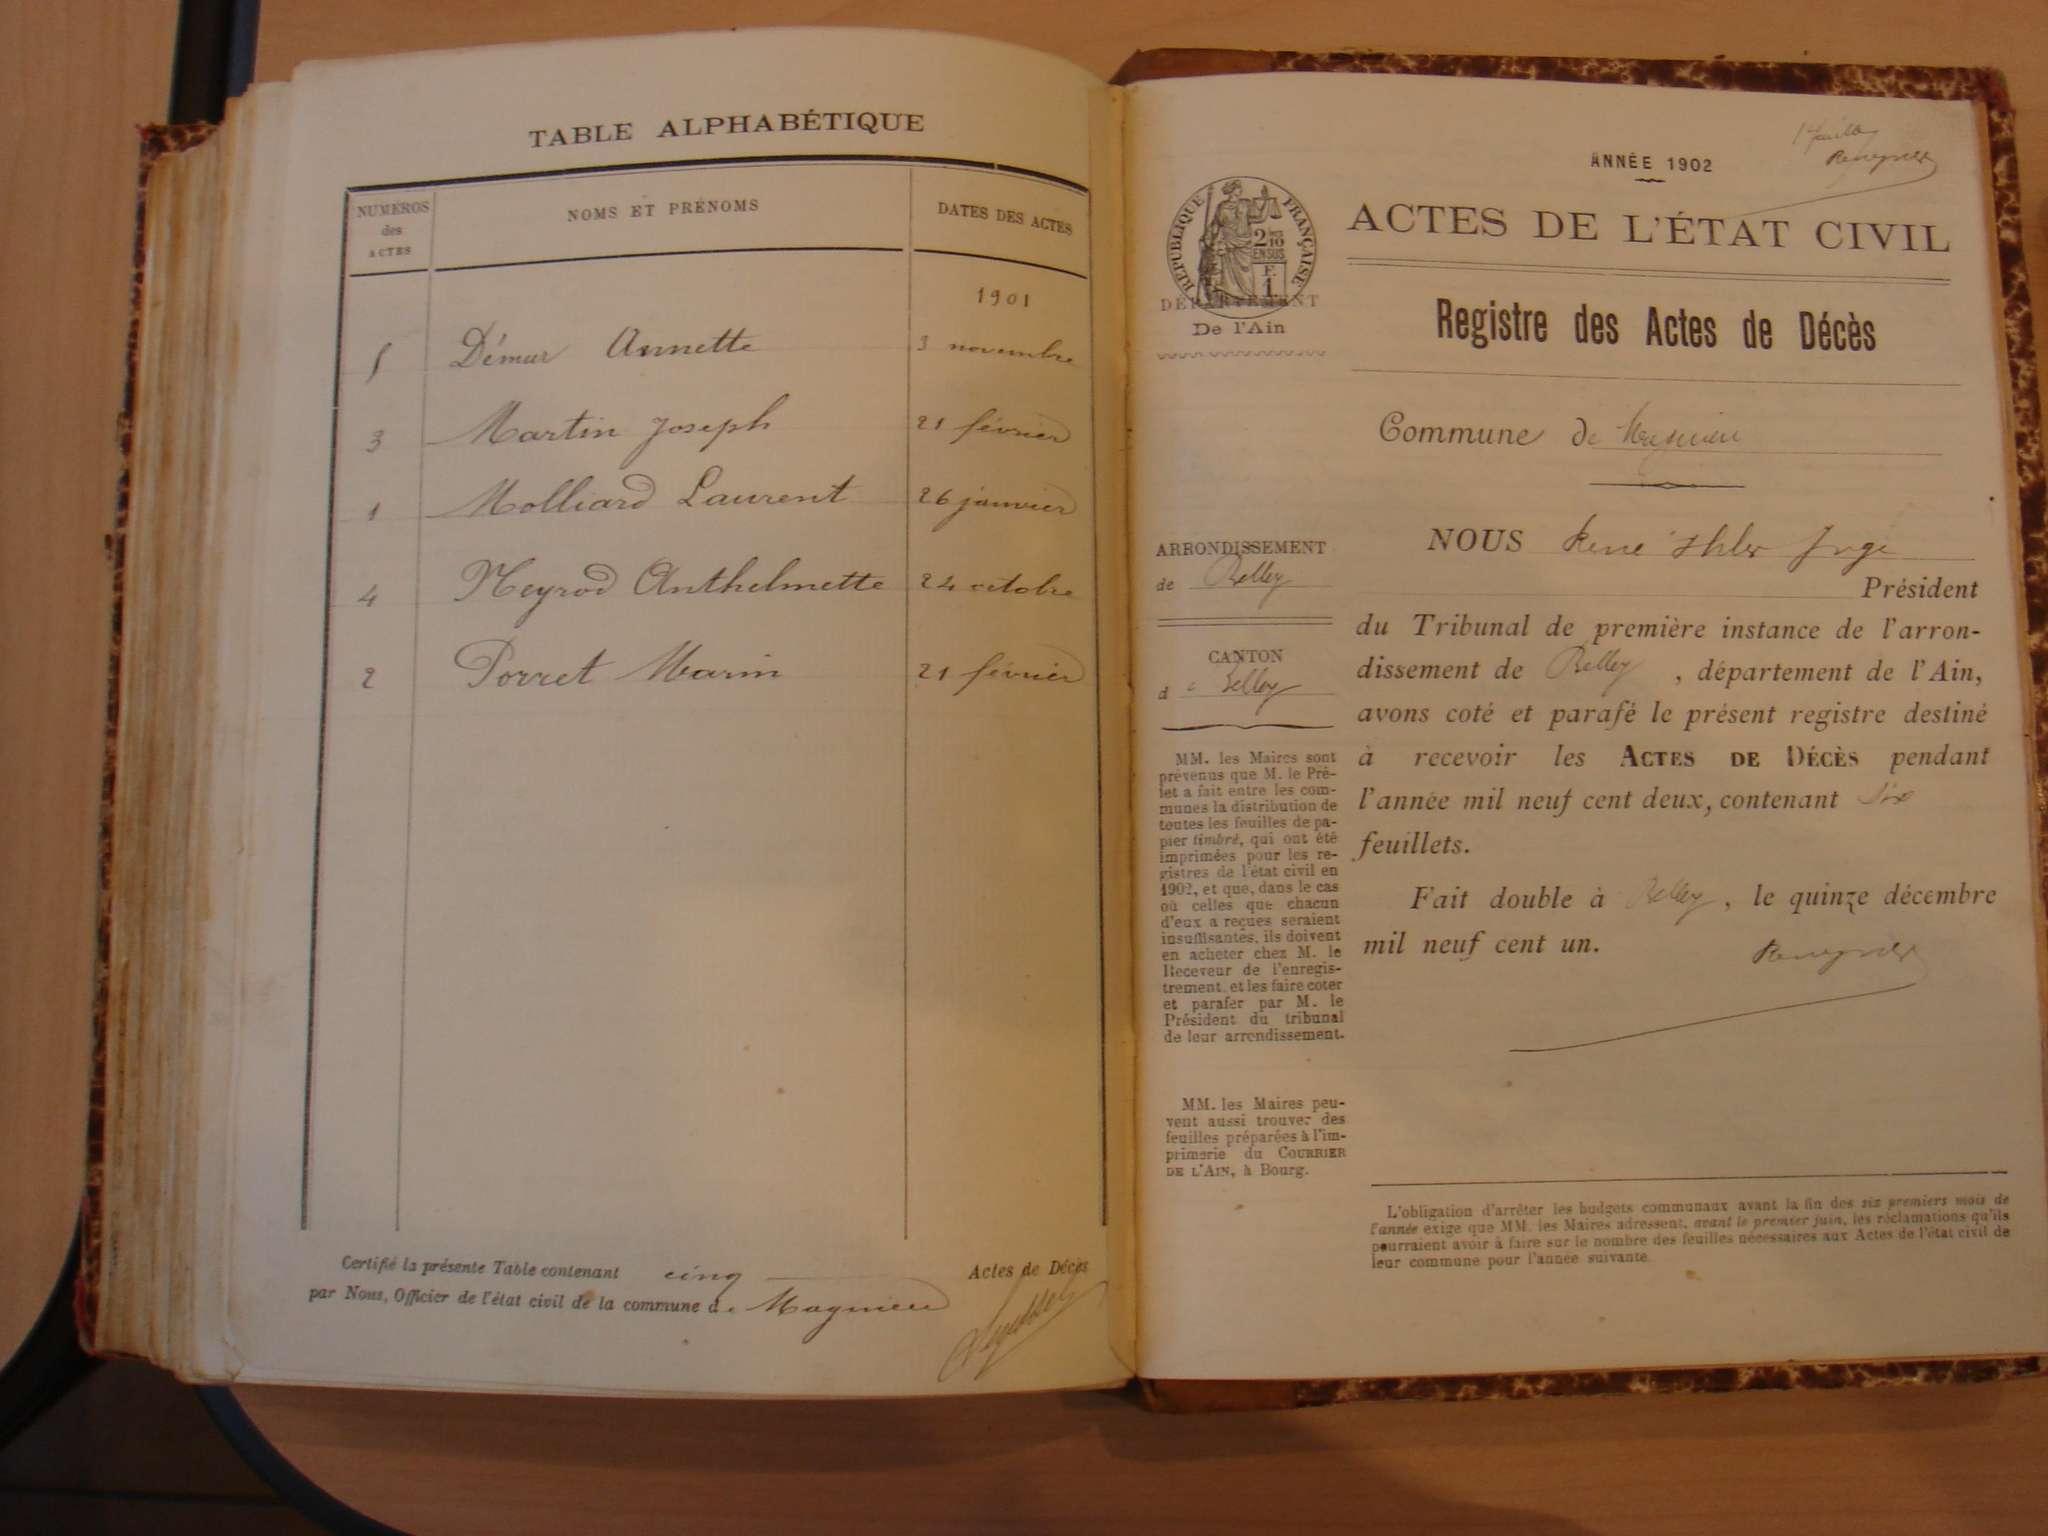 TABLE ALPHABÉTIQUE
NUMÉROS des ACTES
NOMS ET PRÉNOMS
DATES DES ACTES
1901
5 Démur Annette 3 novembre
3 Martin Joseph 21 février
1 Molliard Laurent 26 janvier
4 Neyrod Anthelmette 24 octobre
2 Porret Marin 21 février
Certifié la présente Table contenant cinq Actes de Décès
par Nous, Officier de l'état civil de la commune de Magnieu
ANNÉE 1902
RÉPUBLIQUE FRANÇAISE
2 10
EN SUS
F.
1
DÉPARTEMENT
De l'Ain
ACTES DE L'ÉTAT CIVIL
Registre des Actes de Décès
Commune de Magnieu
ARRONDISSEMENT
de Belley
CANTON
de Belley
MM. les Maires sont
prévenus que M. le Pré-
fet a fait entre les com-
munes la distribution de
toutes les feuilles de pa-
pier timbré, qui ont été
imprimées pour les re-
gistres de l'état civil en
1902, et que, dans le cas
où celles que chacun
d'eux a reçues seraient
insuffisantes, ils doivent
en acheter chez M. le
Receveur de l'enregis-
trement, et les faire coter
et parafer par M. le
Président du tribunal
de leur arrondissement.
MM. les Maires peu-
vent aussi trouver des
feuilles préparées à l'im-
primerie du COURRIER
DE L'AIN, à Bourg.
NOUS René Juge
Président
du Tribunal de première instance de l'arron-
dissement de Belley, département de l'Ain,
avons coté et parafé le présent registre destiné
à recevoir les ACTES DE DÉCÈS pendant
l'année mil neuf cent deux, contenant six
feuillets.
Fait double à Belley, le quinze décembre
mil neuf cent un.
L'obligation d'arrêter les budgets communaux avant la fin des six premiers mois de
l'année exige que MM. les Maires adressent, avant le premier juin, les réclamations qu'ils
pourraient avoir à faire sur le nombre des feuilles nécessaires aux Actes de l'état civil de
leur commune pour l'année suivante.